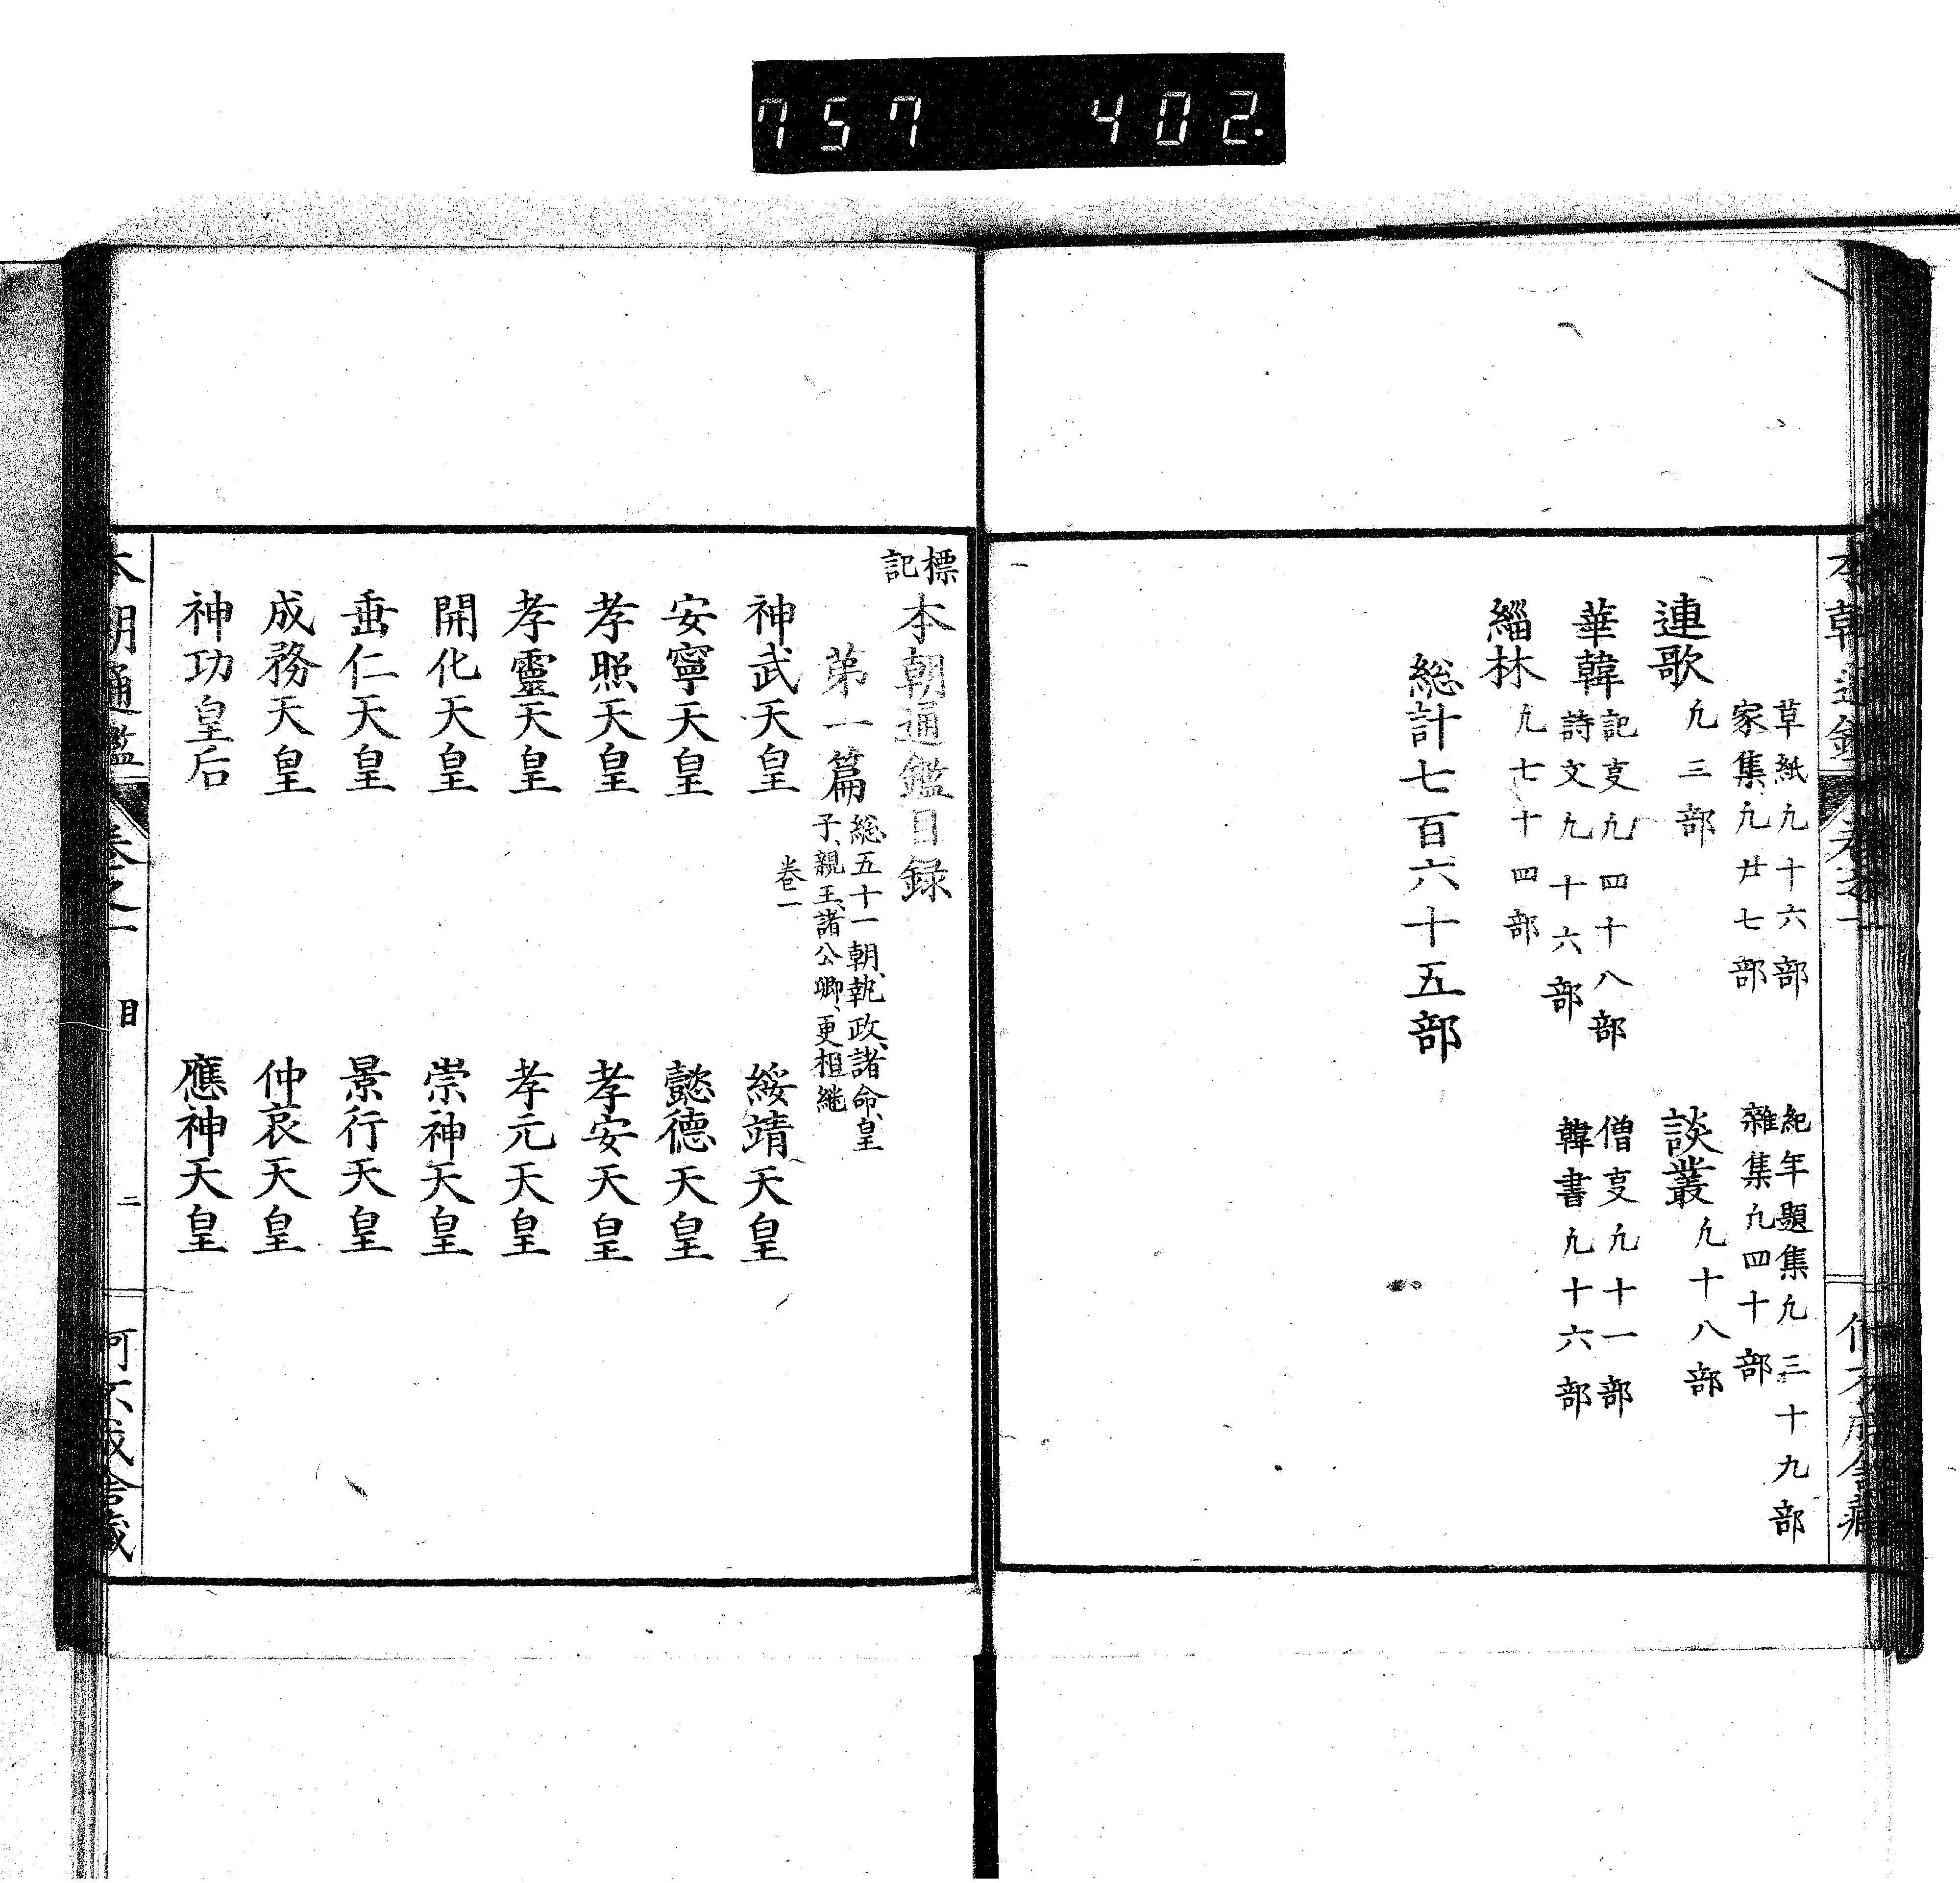 757 402.
草紙凢十六部 紀年題集凢三十九部
家集凢廿七部 雜集凢四十部
連歌凢三部 談叢凢十八部
華韓記叓凢四十八部 僧叓凢十一部
詩文凢十六部 韓書凢十六部
緇林凢七十四部
総計七百六十五部
標記本朝通鑑目録
第一篇総五十一朝、執政、諸命、皇
子、親王、諸公卿、更相継
卷一
神武天皇 綏靖天皇
安寧天皇 懿德天皇
孝照天皇 孝安天皇
孝靈天皇 孝元天皇
開化天皇 崇神天皇
垂仁天皇 景行天皇
成務天皇 仲哀天皇
神功皇后 應神天皇
本朝通鑑 卷之一 目 二